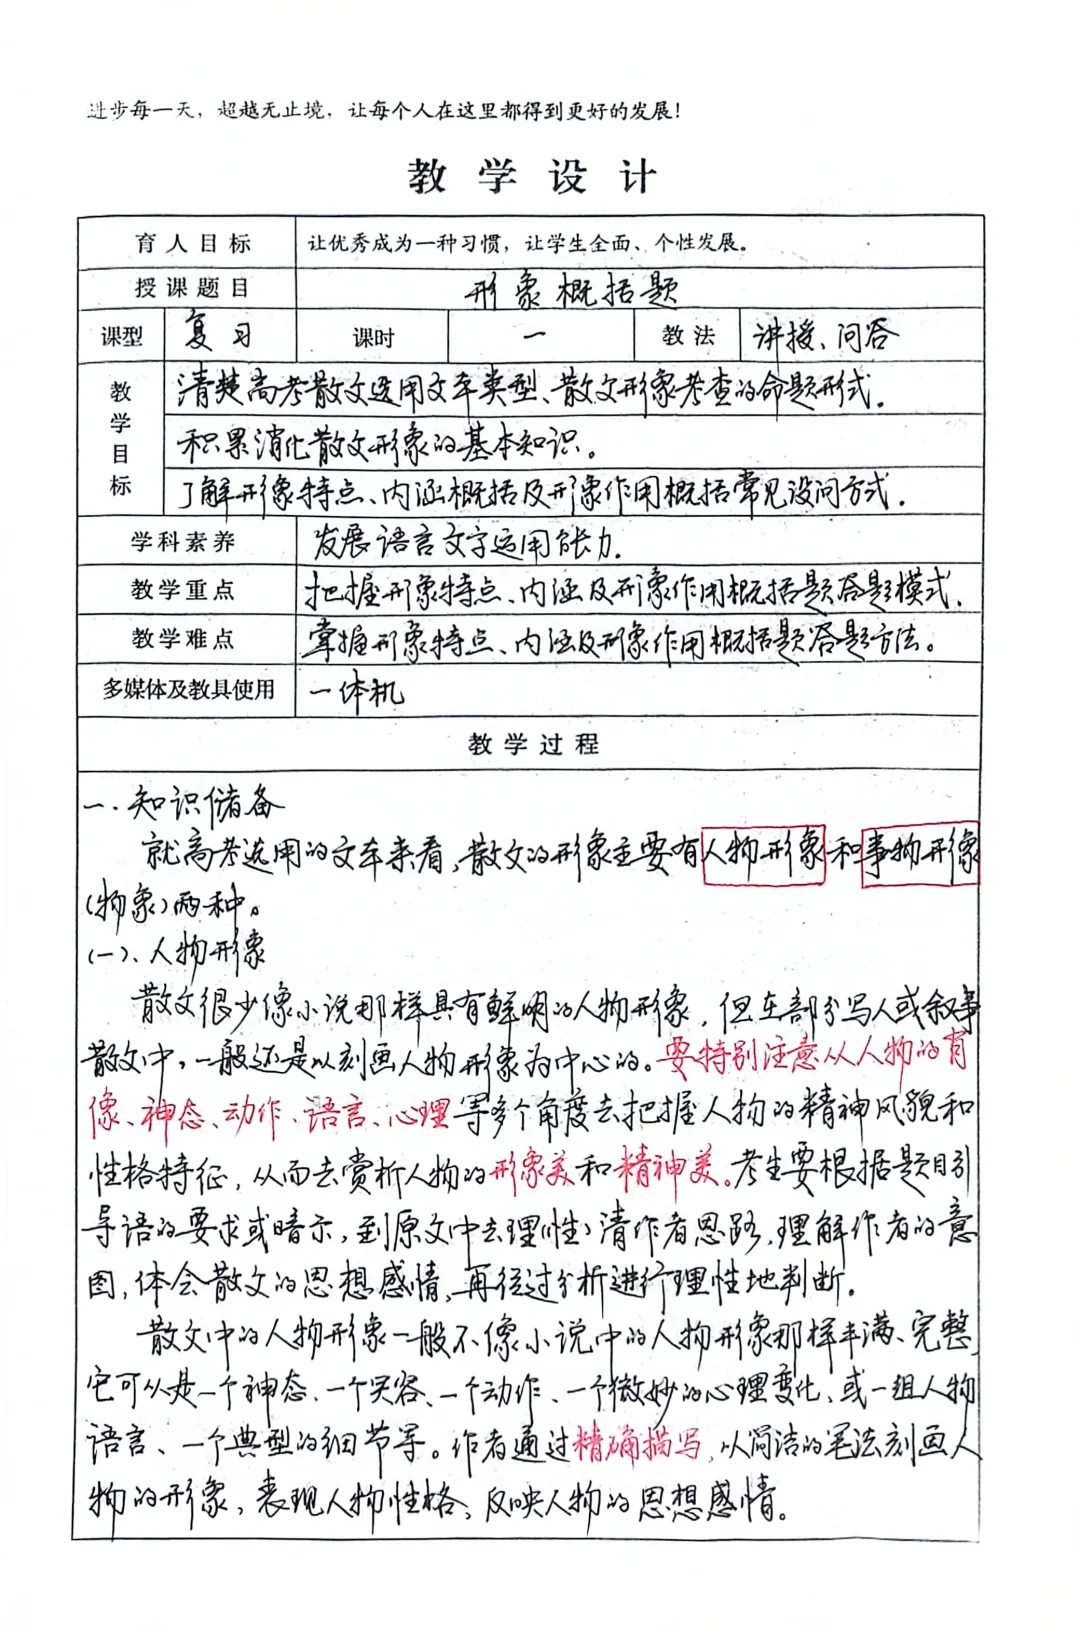 进步每一天，超越无止境，让每个人在这里都得到更好的发展！
教学设计
育人目标 让优秀成为一种习惯，让学生全面、个性发展。
授课题目 形象概括题
课型 复习 课时 一 教法 讲授、问答
教学目标
清楚高考散文选用文章类型、散文形象考查的命题形式.
积累消化散文形象的基本知识。
了解形象特点、内涵概括及形象作用概括常见设问方式.
学科素养 发展语言文字运用能力.
教学重点 把握形象特点、内涵及形象作用概括题答题模式.
教学难点 掌握形象特点、内涵及形象作用概括题答题方法。
多媒体及教具使用 一体机
教学过程
一.知识储备
就高考选用的文章来看,散文的形象主要有人物形象和事物形象
(物象)两种。
(一)、人物形象
散文很少像小说那样具有鲜明的人物形象，但在部分写人或叙事
散文中,一般还是以刻画人物形象为中心的。要特别注意从人物的肖
像、神态、动作、语言、心理等多个角度去把握人物的精神风貌和
性格特征，从而去赏析人物的形象美和精神美。考生要根据题目引
导语的要求或暗示，到原文中去理(性)清作者思路,理解作者的意
图,体会散文的思想感情,再经过分析进行理性地判断.
散文中的人物形象一般不像小说中的人物形象那样丰满、完整,
它可以是一个神态、一个笑容、一个动作、一个微妙的心理变化、或一组人物
语言、一个典型的细节等。作者通过精确描写,以简洁的笔法刻画人
物的形象，表现人物性格,反映人物的思想感情。